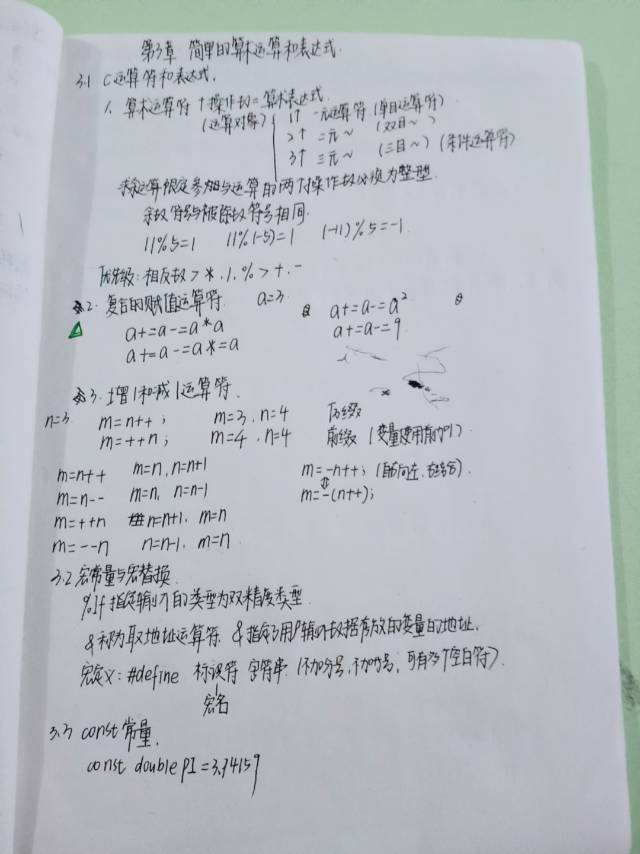 第3章 简单的算术运算和表达式.
3.1 C运算符和表达式.
1. 算术运算符 + 操作数 = 算术表达式.
(运算对象)
1个 一元运算符 (单目运算符)
2个 二元~ (双目~)
3个 三元~ (三目~) (条件运算符)
求余运算限定参与运算的两个操作数必须为整型.
余数符号与被除数符号相同.
11%5=1 11%(-5)=1 (-11)%5=-1
优先级: 相反数 > *, /, % > +, -
2. 复合的赋值运算符. a=3 a+=a-=a²
a+=a-=a*a a+=a-=9
a+=a-=a*=a
3. 增1和减1运算符.
n=3 m=n++; m=3, n=4 后缀
m=++n; m=4, n=4 前缀 (变量使用前加1)
m=n++ m=n, n=n+1 m=-n++; (自右向左, 右结合).
m=n-- m=n, n=n-1 m=-(n++);
m=++n n=n+1, m=n
m=--n n=n-1, m=n
3.2 宏常量与宏替换
%lf 指定输入的类型为双精度类型
&称为取地址运算符. &指定了用户输入数据存放的变量的地址.
宏定义: #define 标识符 字符串 (不加分号, 不加=号, 可有多个空白符)
宏名
3.3 const常量.
const double PI=3.14159